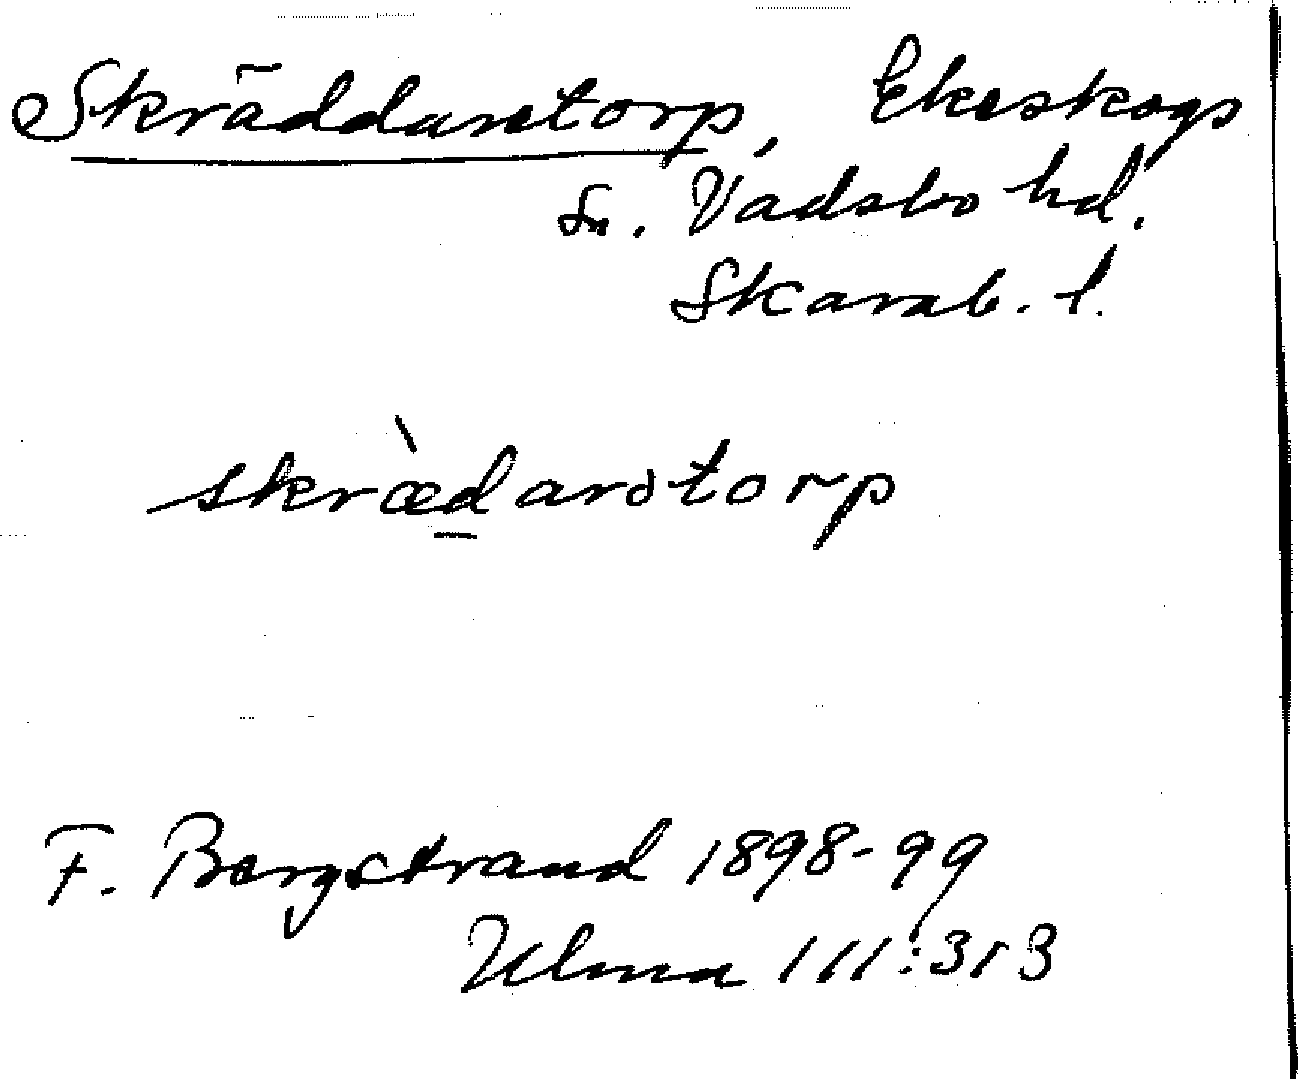 Skräddaretorp, Ekeskogs
sn. Vadsbo hd.
Skarab. l.
skræ̀darətorp
F. Bergstrand 1898-99
Ulma 111:313